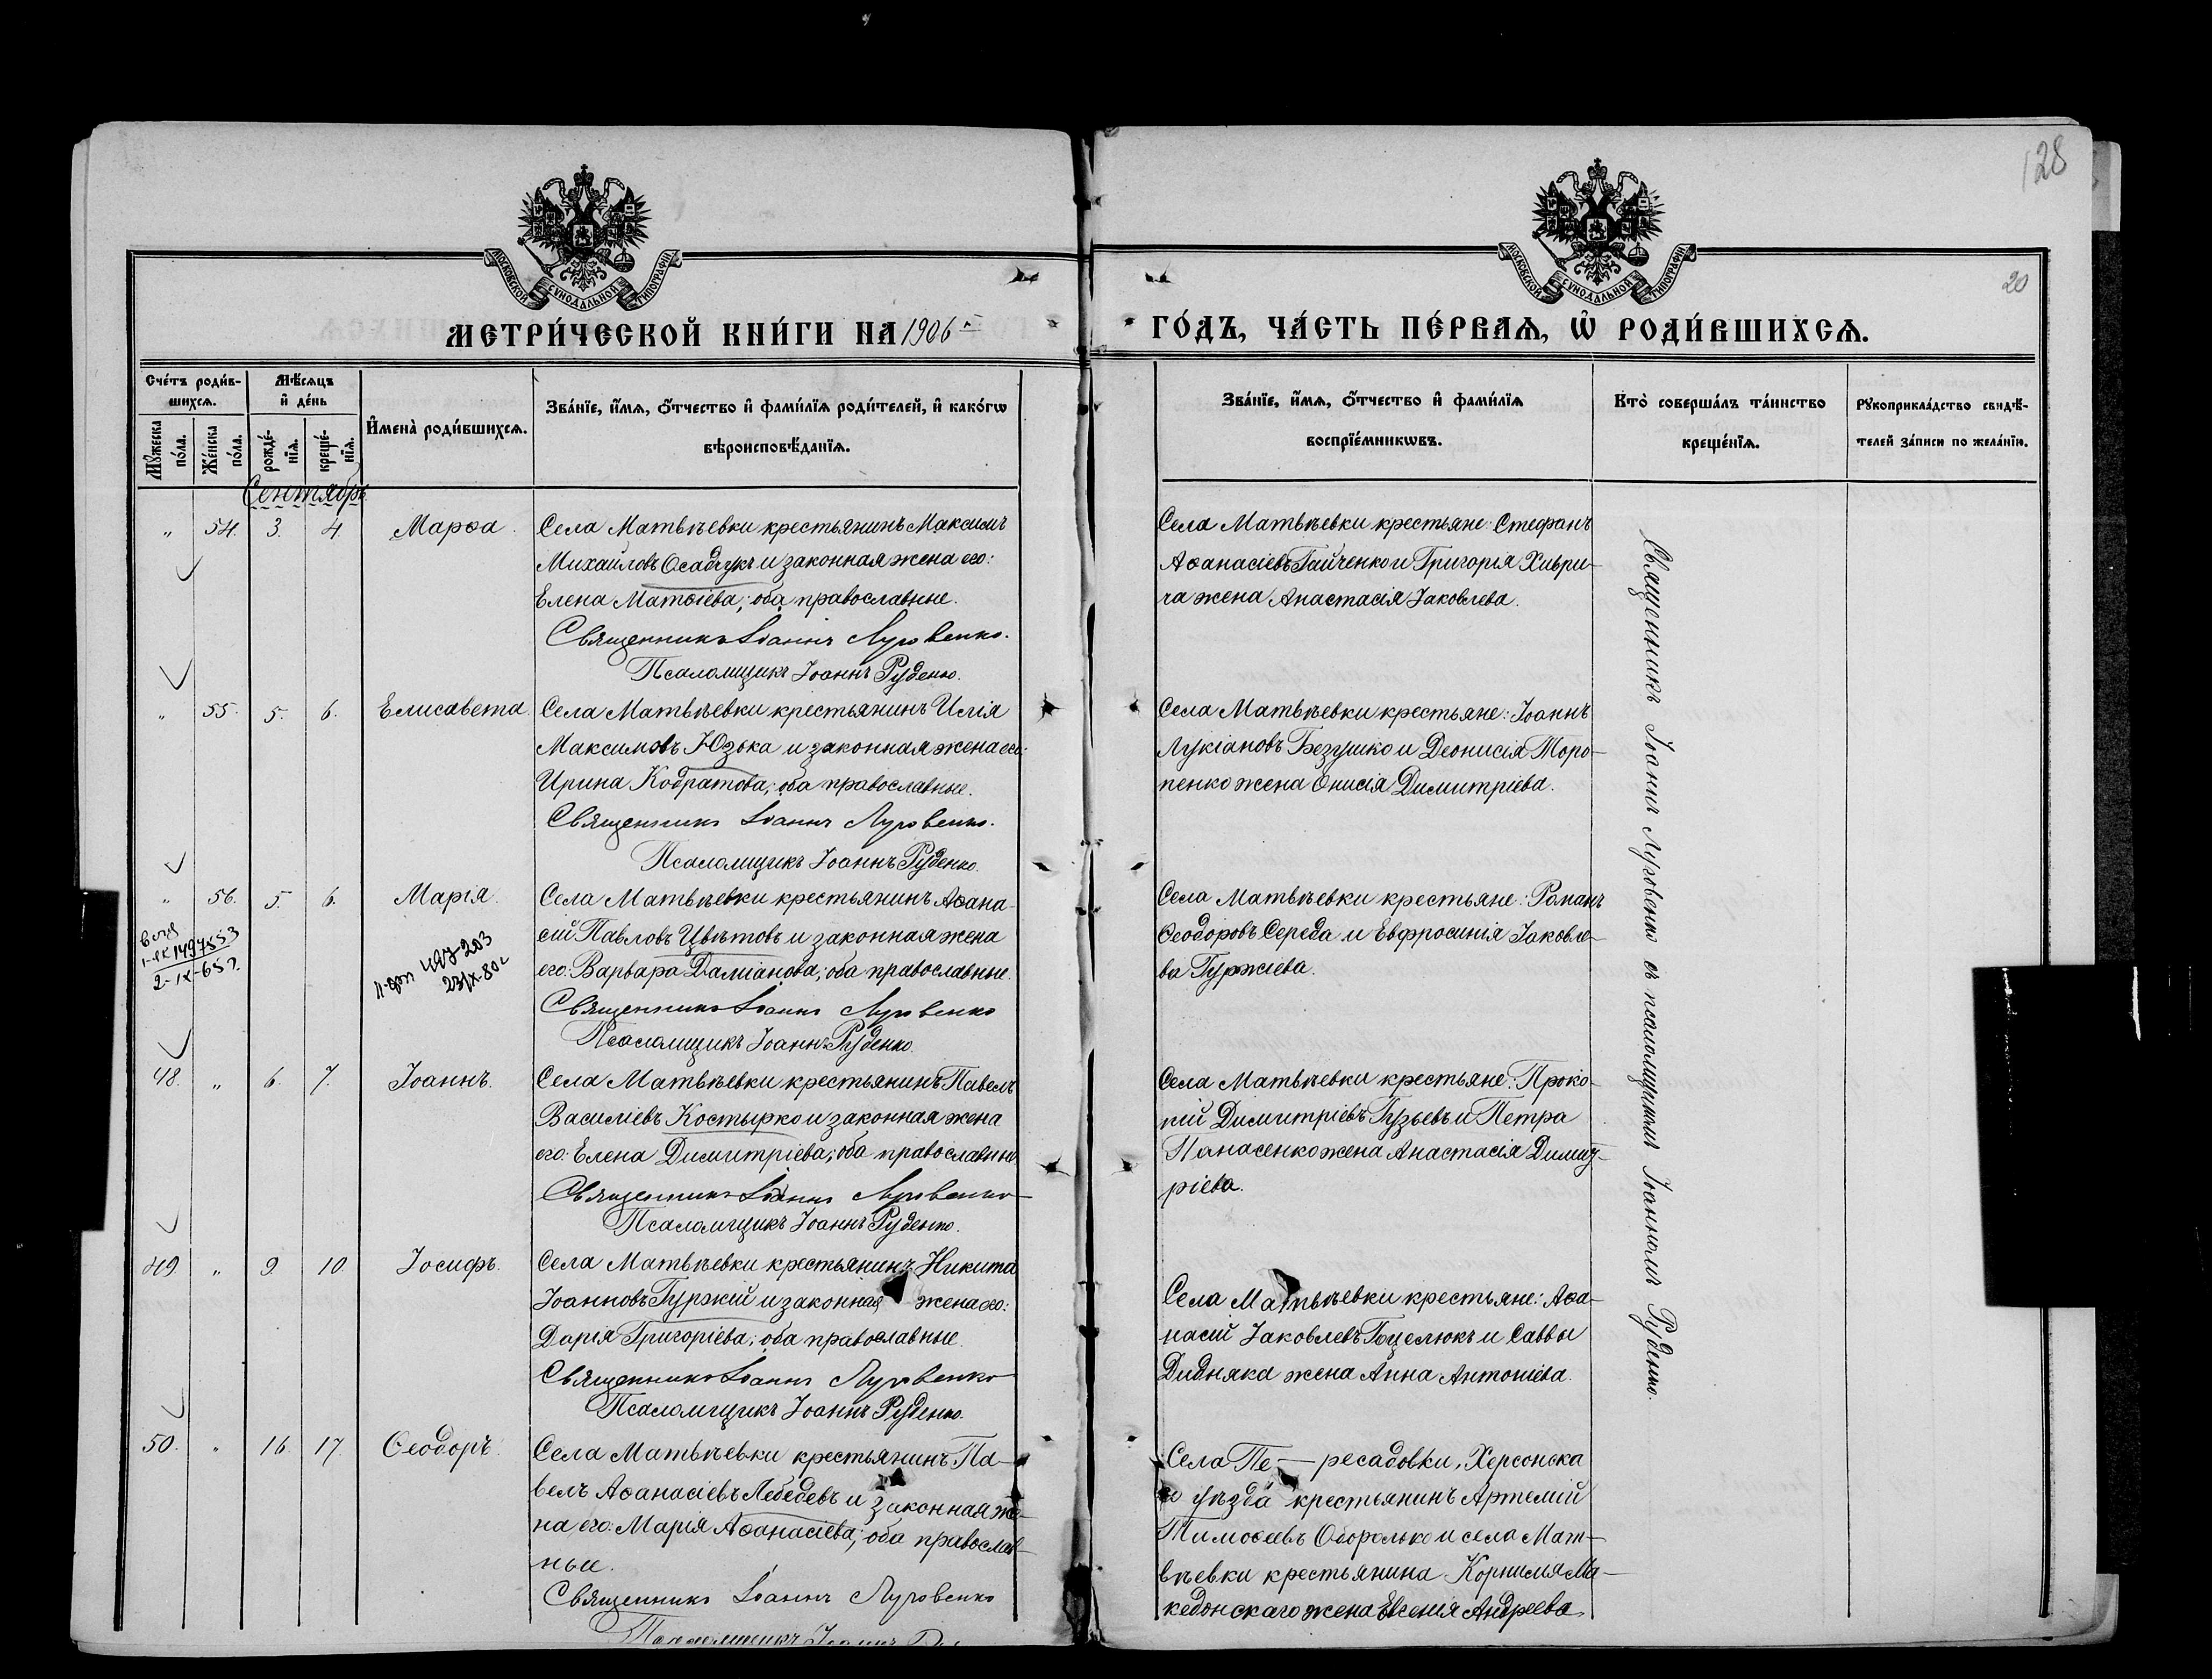 128
20
МОСКОВСКОЙ СѴНОДАЛЬНОЙ ТИПОГРАФІИ
МОСКОВСКОЙ СѴНОДАЛЬНОЙ ТИПОГРАФІИ
МЕТРИ́ЧЕСКОЙ КНИ́ГИ НА 1906
ГО́ДЪ, ЧА́СТЬ ПЕ́РВАѦ, Ѡ҆ РОДИ́ВШИХСѦ.
Сче́тъ роди́в-
шихсѧ.
Мѣ́сѧцъ
и҆ де́нь
Мꙋ́жеска по́ла.
Же́нска по́ла.
рожде́-
нїѧ.
креще́-
нїѧ.
И҆мена̀ роди́вшихсѧ.
Зва́нїе, и҆́мѧ, ѻ҆́тчество и҆ фами́лїѧ роди́телей, и҆ како́гѡ
вѣроисповѣ́данїѧ.
Зва́нїе, и҆́мѧ, ѻ҆́тчество и҆ фами́лїѧ
воспрїе́мникѡвъ.
Кто̀ соверша́лъ та́инство
креще́нїѧ.
Рꙋкоприкла́дство свидѣ́-
телей за́писи по жела́нїю.
Сентябрь
" 54. 3. 4. Марѳа.
Села Матвѣевки крестьянинъ Максимъ
Михайловъ Осадчукъ и законная жена его:
Елена Матѳіева; оба православные.
Священникъ Іоаннъ Луговенко.
Псаломщикъ Іоаннъ Руденко.
Села Матвѣевки крестьяне: Стефанъ
Аѳанасіевъ Гайченко и Григорія Хиври-
ча жена Анастасія Іаковлева.
" 55. 5. 6. Елисавета.
Села Матвѣевки крестьянинъ Илія
Максимовъ Юзька и законная жена его:
Ирина Кодратова; оба православные.
Священникъ Іоаннъ Луговенко.
Псаломщикъ Іоаннъ Руденко.
Села Матвѣевки крестьяне: Іоаннъ
Лукіановъ Безушко и Деонисія Торо-
пенко жена Онисія Димитріева.
" 56. 5. 6. Марія.
Села Матвѣевки крестьянинъ Аѳана-
сій Павловъ Цвѣтовъ и законная жена
его: Варвара Даміанова; оба православные.
Священникъ Іоаннъ Луговенко
Псаломщикъ Іоаннъ Руденко.
Села Матвѣевки крестьяне: Романъ
Ѳеодоровъ Середа и Евфросинія Іаковле-
ва Гуржіева.
2-IX-65г.
48. " 6. 7. Іоаннъ.
Села Матвѣевки крестьянинъ Павелъ
Василіевъ Костырко и законная жена
его: Елена Димитріева; оба православные.
Священникъ Іоаннъ Луговенко
Псаломщикъ Іоаннъ Руденко.
Села Матвѣевки крестьяне: Проко-
пій Димитріевъ Гузьевъ и Петра
Панасенко жена Анастасія Димит-
ріева.
49. " 9. 10. Іосифъ.
Села Матвѣевки крестьянинъ Никита
Іоанновъ Гуржій и законная жена его:
Дарія Григоріева; оба православные.
Священникъ Іоаннъ Луговенко
Псаломщикъ Іоаннъ Руденко.
Села Матвѣевки крестьяне: Аѳа-
насій Іаковлевъ Гоцелюкъ и Саввы
Дидняка жена Анна Антоніева.
50. " 16. 17. Ѳеодоръ.
Села Матвѣевки крестьянинъ Па-
велъ Аѳанасіевъ Лебедевъ и законная же-
на его: Марія Аѳанасіева; оба православ-
ные.
Священникъ Іоаннъ Луговенко
Псаломщикъ Іоаннъ
Села Пе-ресадовки, Херсонска
го уѣзда крестьянинъ Артемій
Тимоѳеевъ и села Мат-
вѣевки крестьянина Корнилія Ма-
кедонскаго жена Евгенія Андреева.
Священникъ Іоаннъ Луговенко съ псаломщикомъ Іоанномъ Руденко.